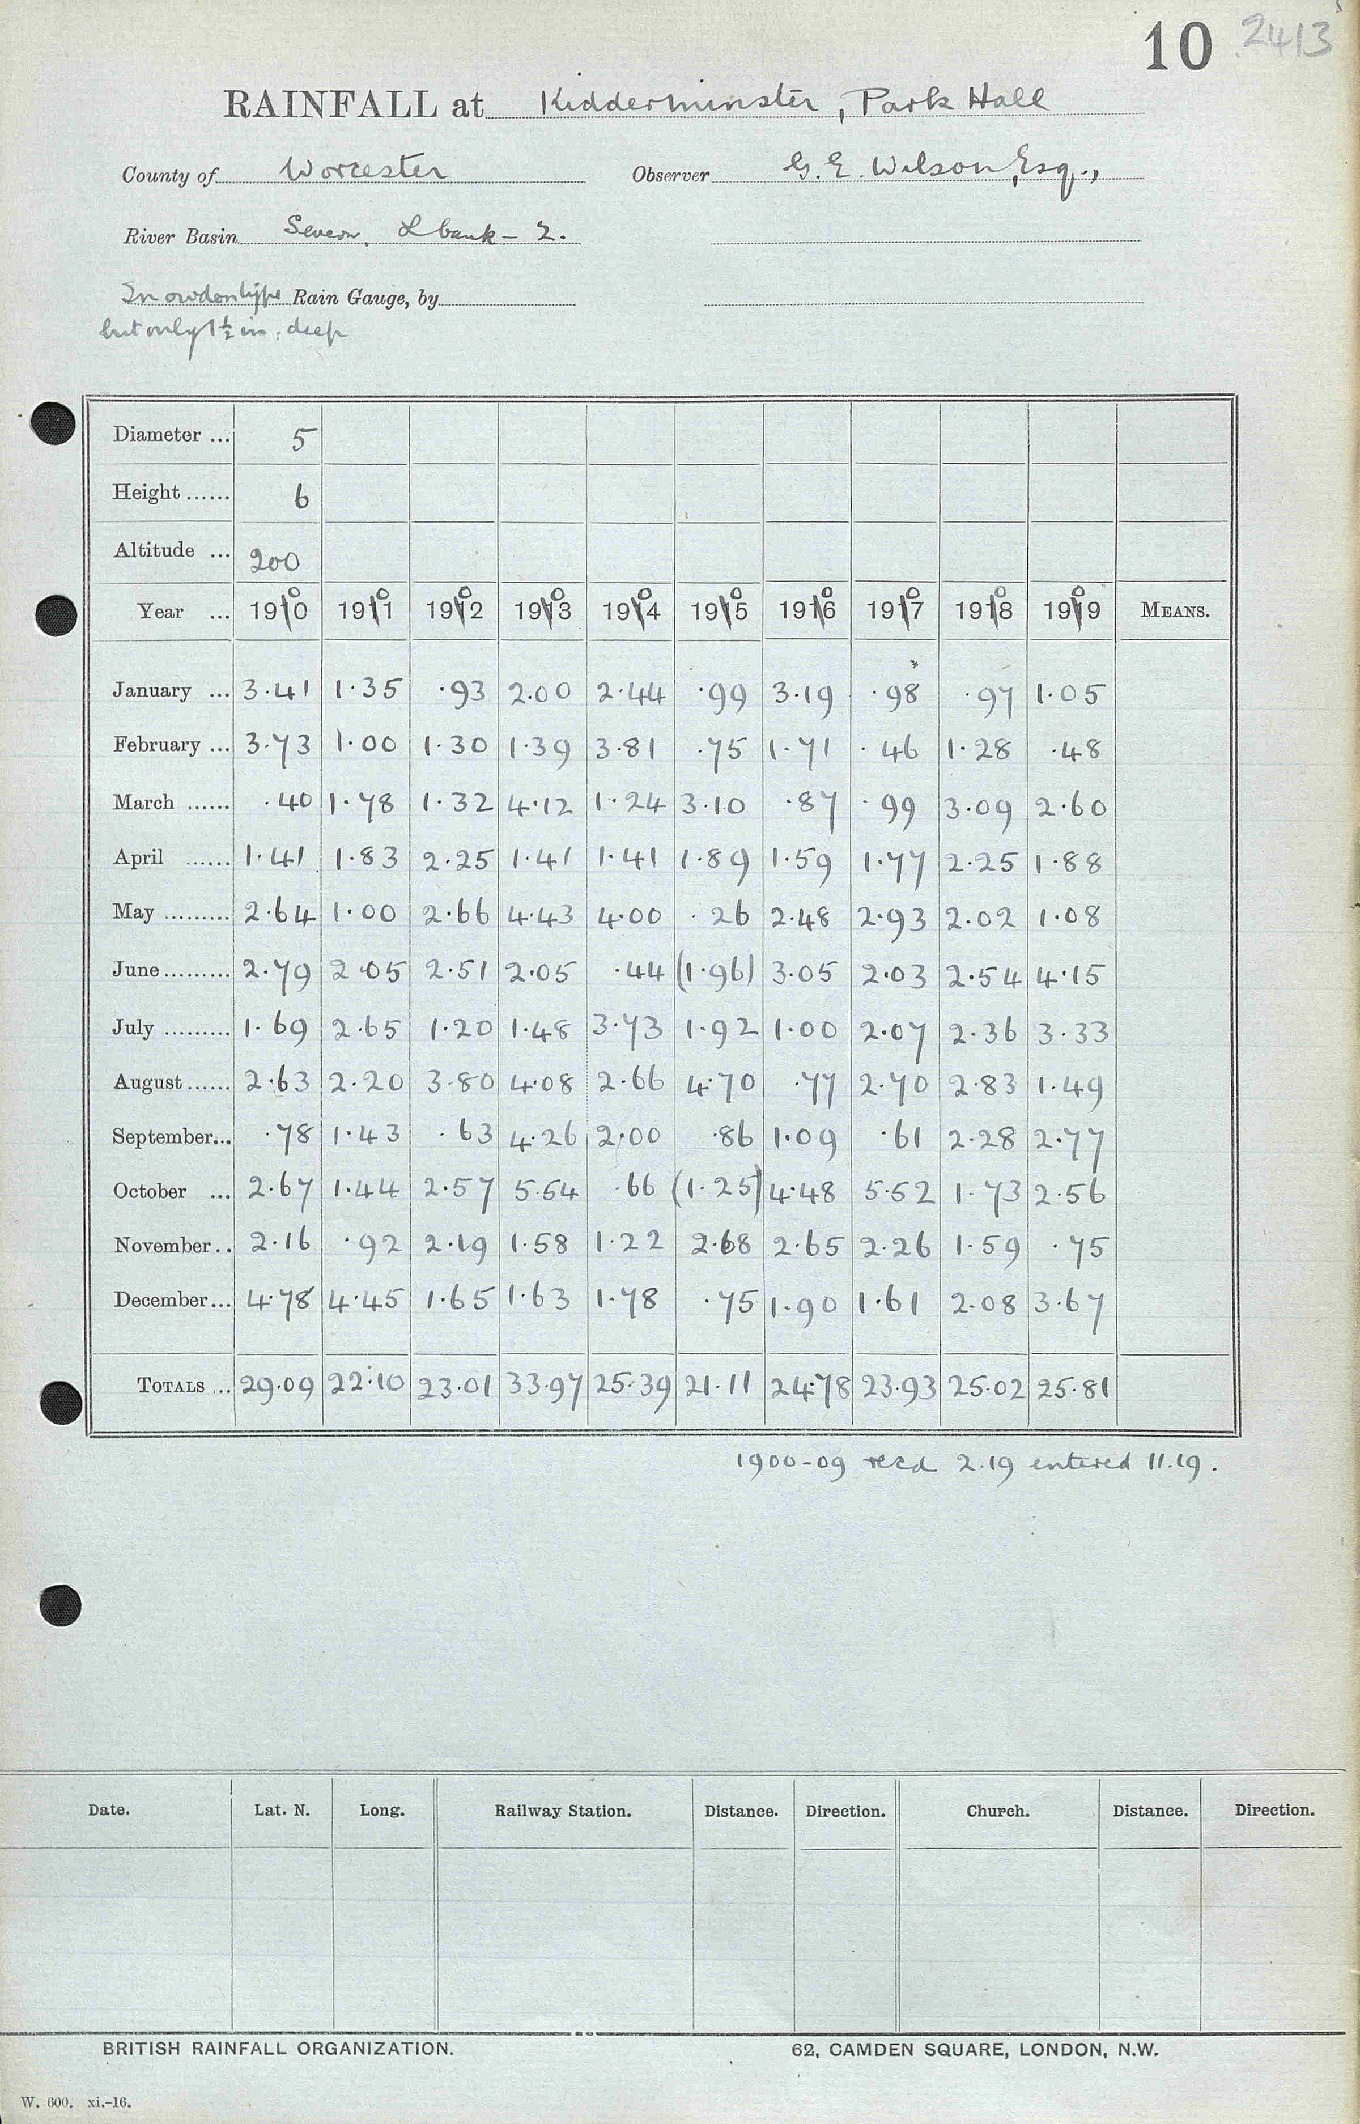 10 2413
RAINFALL at Kidderminster, Park Hall
County of Worcester Observer G. E. Wilson, Esq.,
River Basin Severn. L bank – 2.
Snowdon type Rain Gauge, by
but only 1½ in. deep
Diameter ... 5
Height ...... 6
Altitude ... 200
Year ... 1900 1901 1902 1903 1904 1905 1906 1907 1908 1909 MEANS.
January ... 3.41 1.35 .93 2.00 2.44 .99 3.19 .98 .97 1.05
February ... 3.73 1.00 1.30 1.39 3.81 .75 1.71 .46 1.28 .48
March ...... .40 1.78 1.32 4.12 1.24 3.10 .87 .99 3.09 2.60
April ...... 1.41 1.83 2.25 1.41 1.41 1.89 1.59 1.77 2.25 1.88
May ......... 2.64 1.00 2.66 4.43 4.00 .26 2.48 2.93 2.02 1.08
June ......... 2.79 2.05 2.51 2.05 .44 (1.96) 3.05 2.03 2.54 4.15
July ......... 1.69 2.65 1.20 1.48 3.73 1.92 1.00 2.07 2.36 3.33
August ...... 2.63 2.20 3.80 4.08 2.66 4.70 .77 2.70 2.83 1.49
September... .78 1.43 .63 4.26 2.00 .86 1.09 .61 2.28 2.77
October ... 2.67 1.44 2.57 5.54 .66 (1.25) 4.48 5.52 1.73 2.56
November .. 2.16 .92 2.19 1.58 1.22 2.68 2.65 2.26 1.59 .75
December... 4.78 4.45 1.65 1.63 1.78 .75 1.90 1.61 2.08 3.67
TOTALS ... 29.09 22.10 23.01 33.97 25.39 21.11 24.78 23.93 25.02 25.81
1900-09 recd 2.19 entered 11.19.
Date. Lat. N. Long. Railway Station. Distance. Direction. Church. Distance. Direction.
BRITISH RAINFALL ORGANIZATION. 62, CAMDEN SQUARE, LONDON, N.W.
W. 600. xi.-16.